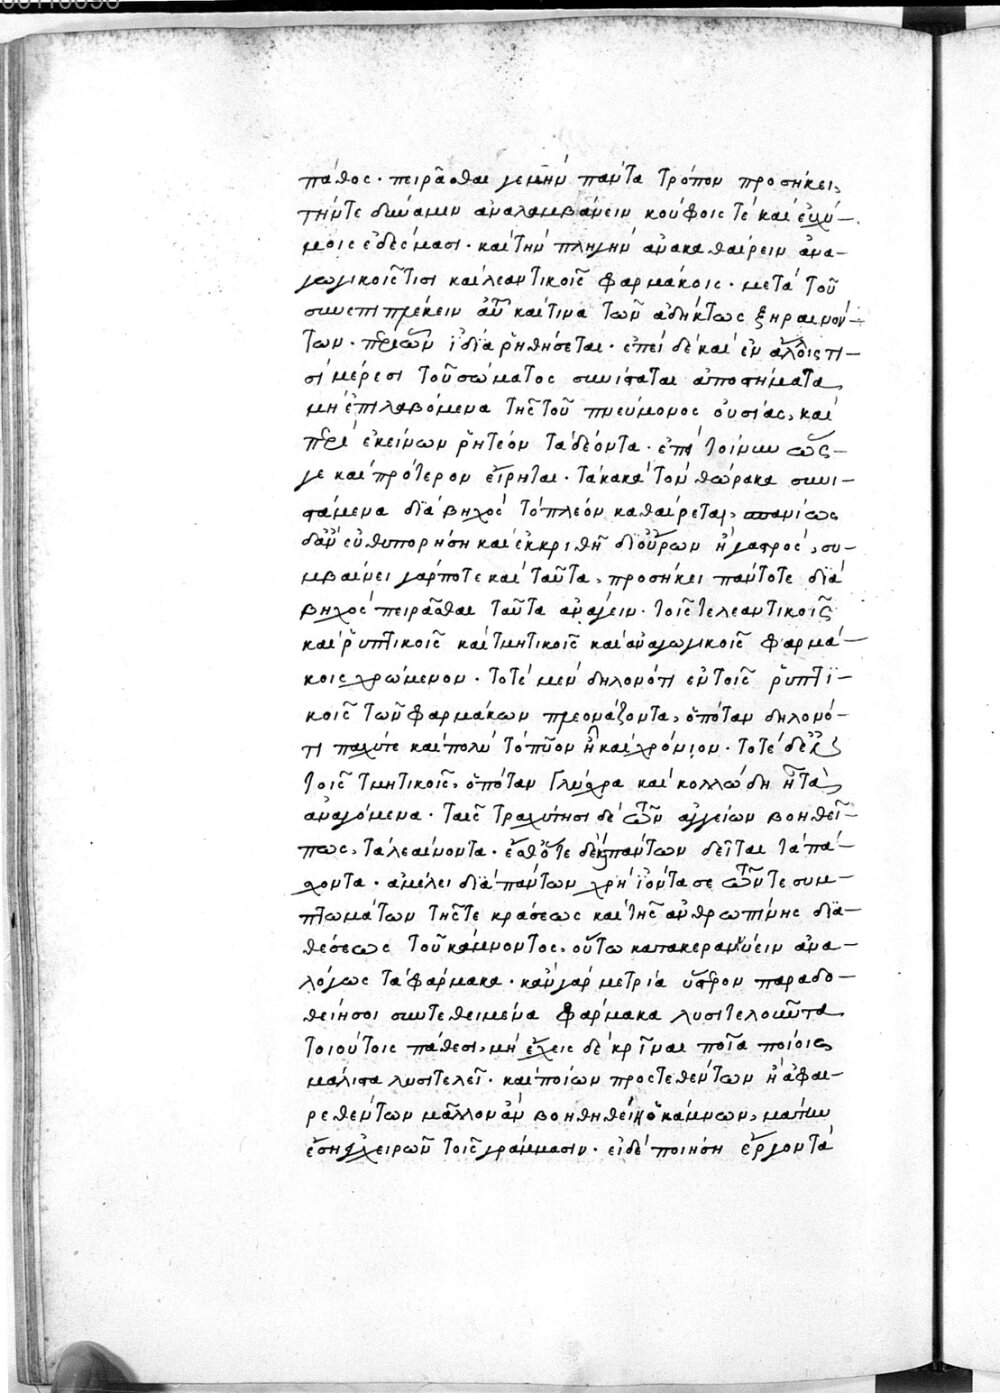 πάθος· πειρᾶσθαι γεμὴν πάντα τρόπον προσήκει,
τήντε δύναμιν ἀναλαμβάνειν κούφοις τὲ καὶ εὐχύ-
μοις ἐδέσμασι· καὶ τὴν πληγὴν ἀνακαθαίρειν ἀνα-
γωγικοῖς τισι καὶ λεαντικοῖς φαρμάκοις· μετὰ τοῦ
συνεπιπλέκειν αὖ καί τινα τῶν ἀδήκτως ξηραινόν-
των· περὶ ὧν ἰδία ῥηθήσεται· ἐπεὶ δὲ καὶ ἐν ἄλλοις τι-
σὶ μέρεσι τοῦ σώματος συνίσταται ἀποστήματα,
μὴ ἐπιλαβόμενα τῆς τοῦ πνεύμονος οὐσίας, καὶ
περὶ ἐκείνων ῥητέον τὰ δέοντα· ἐπεὶ τοίνυν ὥς-
γε καὶ πρότερον εἴρηται· τὰ κατὰ τὸν θώρακα συνι-
στάμενα διὰ βηχὸς τὸ πλέον καθαίρεται, σπανίως
δ' ἂν εὐθυπορήση καὶ ἐκκριθῆ δι' οὔρων ἢ γαστρός, συ-
μβαίνει γάρ ποτε καὶ ταῦτα, προσήκει πάντοτε διὰ
βηχὸς πειρᾶσθαι ταῦτα ἀνάγειν· τοῖς τε λεαντικοῖς
καὶ ῥυπτικοῖς καὶ τμητικοῖς καὶ ἀναγωγικοῖς φαρμά-
κοις χρώμενον· τοτὲ μὲν δηλονότι ἐν τοῖς ῥυπτι-
κοῖς τῶν φαρμάκων πλεονάζοντα, ὁπόταν δηλονό-
τι παχύτε καὶ πολὺ τὸ πῦον ἢ καὶ χρόνιον· τοτὲ δὲ κἀν
τοῖς τμητικοῖς, ὁπόταν γλίσχρα καὶ κολλώδη ᾖ τὰ
ἀναγόμενα· ταῖς τραχύτησι δὲ τῶν ἀγγείων βοηθεῖ
πως, τὰ λεαίνοντα· ἔσθ' ὅτε δὲ καὶ πάντων δεῖται τὰ πά-
σχοντα· ἀμέλει διὰ πάντων χρὴ ἰόντα σε τῶν τε συμ-
πτωμάτων τῆς τε κράσεως καὶ τῆς ἀνθρωπίνης δια-
θέσεως τοῦ κάμνοντος, οὕτω κατακεραννύειν ἀνα-
λόγως τὰ φάρμακα· κἂν γὰρ μετρία ὕστερον παραδο-
θείησοι συντεθειμένα φάρμακα λυσιτελοῦντα
τοιούτοις πάθεσι, μὴ ἔχεις δὲ κρῖναι ποῖα ποίοις
μάλιστα λυσιτελεῖ· καὶ ποίων προστεθέντων ἢ ἀφαι-
ρεθέντων μᾶλλον ἂν βοηθηθείη ὁ κάμνων, μάτην
ἔση ἐγχειρῶν τοῖς γράμμασιν· εἰ δὲ ποιήση ἔργον τὰ